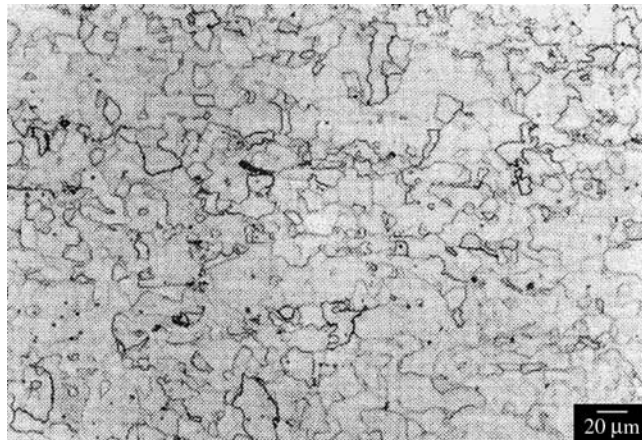 20 μm